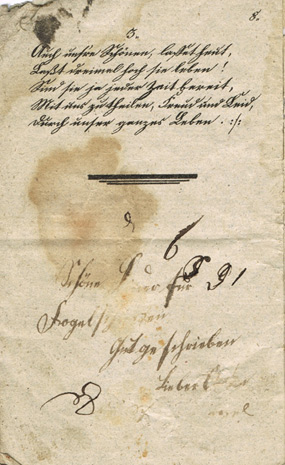 8.
3.
Auch unsre Schönen, lasset heut,
Laßt dreimal hoch sie leben!
Sind sie ja jeder Zeit bereit,
Mit uns zu theilen, Freud und Leid
Durch unser ganzes Leben. :/:
6
Schöne für 91
Gut geschrieben